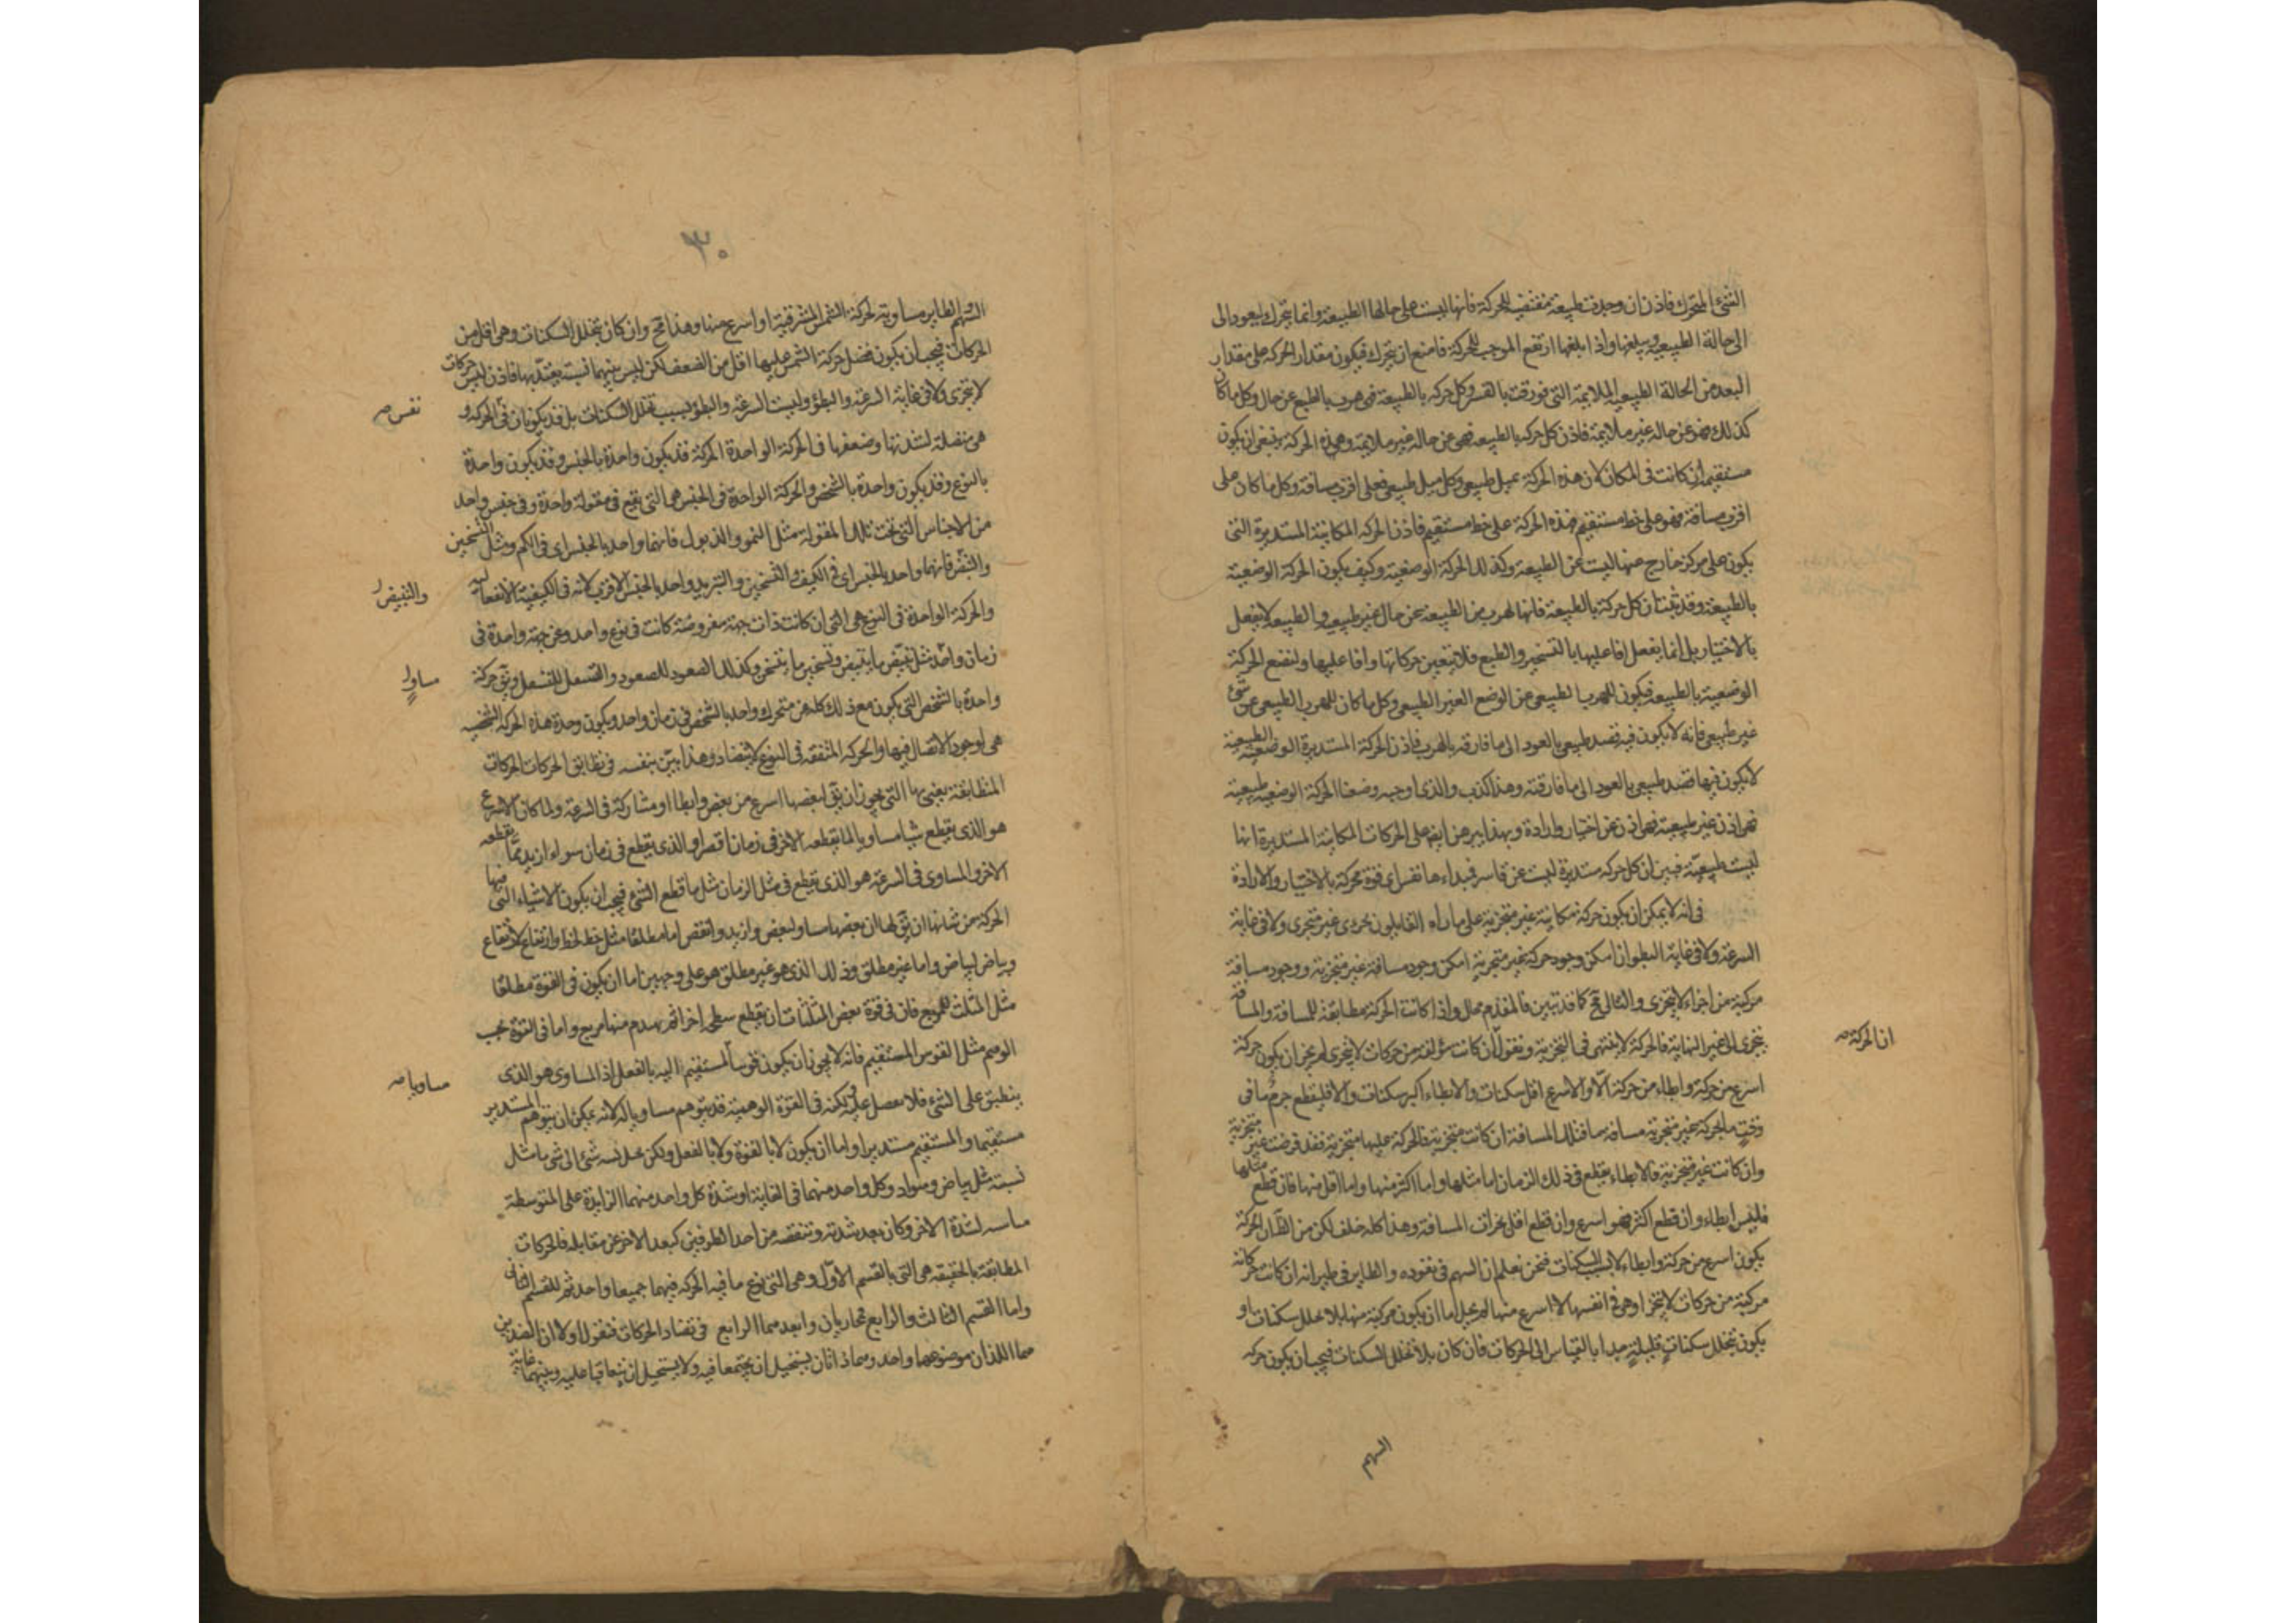 الشئ المتحرك فاذن ان وجدت طبيعة مقتضية للحركة فانها ليست على حالها الطبيعة وانما يتحرك ليعود الى
الى حالة الطبيعية ويبلغها واذا ابلغها ارتفع الموجب للحركة فامتنع ان يتحرك فيكون مقدار الحركة على مقدار
البعد من الحالة الطبيعية الملايمة التى فورقت بالقسر وكل حركه بالطبيعة فهى هرب بالطبع عن حال وكل ما كان
كذلك فهو عن حاله غير ملايمة فاذن كل حركه بالطبيعه فهى عن حاله غير ملايمة وهذه الحركة ينبغى ان يكون
مستقيمة ان كانت فى المكان لان هذه الحركة بميل طبيعى وكل ميل طبيعى فعلى اقرب مسافة وكل ما كان على
اقرب مسافة فهو على خط مستقيم فهذه الحركة على خط مستقيم فاذن الحركه المكانية المستديرة التى
يكون على مركز خارج عنها ليست عن الطبيعة وكذلك الحركة الوضعية وكيف يكون الحركة الوضعية
بالطبيعة وقد ثبت ان كل حركة بالطبيعة فانها لهرب من الطبيعة عن حال غير طبيعيه والطبيعه لا يفعل
بالاختيار بل انما يفعل افاعليها بالتسخير والطبع فلا يتعين حركاتها وافاعليها ولنضع الحركة
الوضعية بالطبيعة فيكون للهرب الطبيعى عن الوضع الغير الطبيعى وكل ما كان للهرب الطبيعى عن شئ
غير طبيعى فانه لا يكون فيه قصد طبيعى بالعود الى ما فارقه بالهرب فاذن الحركة المستديرة الوضعية الطبيعية
لا يكون فيها قصد طبيعى بالعود الى ما فارقته وهذا كذب والذى اوجبه وضعنا الحركة الوضعية طبيعية
فهى اذن غير طبيعية فهى اذن عن اختيار وارادة وبهذا يبرهن ايضا على الحركات المكانية المستديرة انها
ليست طبيعية فبين ان كل حركه مستديرة ليست عن قاسر فمبداءها نفس اى قوة محركة بالاختيار والارادة
فى انه لا يمكن ان يكون حركة مكانية غير متجزية على ما رآه القايلون بجزء غير متجزى ولا فى غاية
السرعة ولا فى غاية البطو ان امكن وجود حركة غير متجزية امكن وجود مسافة غير متجزية ووجود مسافة
مركبة من اجزاء لا يتجزى والتالى مح كما قد تبين فالمقدم محال واذا كانت الحركة مطابقة للمسافة والمسافة
يتجزى الى غير النهاية فالحركة لا ينتهى فى التجزية ونقول ان كانت مؤلفة من حركات لا يتجزى لم يجز ان يكون حركة
ان الحركة صح
اسرع من حركة وابطاء من حركة الا والاسرع اقل سكنات والابطاء اكثر سكنات والا فليقطع جرم ما فى
وقت ما بحركة غير متجزية مسافة ما فتلك المسافة ان كانت متجزية فالحركة عليها متجزية فقد فرضت غير متجزية
وان كانت غير متجزية فالابطاء يقطع فى ذلك الزمان اما مثلها واما اكثر منها واما اقل منها فان قطع مثلها
فليس ابطاء وان قطع اكثر فهو اسرع وان قطع اقل تجزات المسافة وهذا كله خلف لكن من الظاهر ان الحركة
يكون اسرع من حركة وابطاء لا بسبب السكنات فنحن نعلم ان السهم فى نفوذه والطاير فى طيرانه ان كانت حركاته
مركبة من حركات لا يتجزا وهى فى انفسها لا اسرع منها لم يخل اما ان يكون مركبة منها بلا تخلل سكنات او
يكون بتخلل سكنات قليلة جدا بالقياس الى الحركات فان كان بلا تخلل السكنات فيجب ان يكون حركه
السهم
٣٠
السهم والطاير مساوية لحركة الشمس المشرقية او اسرع منها وهذا مح وان كان بتخلل السكنات وهى اقل من
الحركات فيجب ان يكون فضل حركة الشمس عليها اقل من الضعف لكن ليس بينهما نسبة يعتد بها فاذن ليس حركات
لا يتجزى ولا فى غاية السرعة والبطؤ وليست السرعة والبطؤ بسبب تخلل السكنات بل قد يكونان فى الحركه و
نفس صح
هى متصلة لشدتها وضعفها فى الحركة الواحدة الحركة قد يكون واحدة بالجنس وقد يكون واحدة
بالنوع وقد يكون واحدة بالشخص والحركة الواحدة فى الجنس هى التى يقع فى مقولة واحدة وفى جنس واحد
من الاجناس التى تحت تلك المقولة مثل النمو والذبول فانهما واحد بالجنس اى فى الكم ومثل التسخين
والتبيض فانهما واحد بالجنس اى فى الكيف والتسخين والتبريد واحد بالجنس الاقرب لانه فى الكيفية الانفعالية
والتبيض
والحركة الواحدة فى النوع هى التى ان كانت ذات جهة مفروضة كانت فى نوع واحد وعن جهة واحدة فى
زمان واحد مثل تبيض ما يتبيض وتسخين ما يتسخن وكذلك الصعود للصعود والتسفل للتسفل ويق حركة
مساوٍ
واحدة بالشخص التى يكون مع ذلك كله من متحرك واحد بالشخص فى زمان واحد ويكون وحدة هذه الحركه الشخصيه
هى لوجود الاتصال فيها والحركه المتفقه فى النوع لا يتضاد وهذا بين بنفسه فى تطابق الحركات الحركات
المتطابقة يعنى بها التى يجوز ان يق لبعضها اسرع من بعض وابطا او مشاركة فى السرعة ولما كان الاسرع
هو الذى يقطع شيئا مساويا لما يقطعه الاخر فى زمان اقصر او الذى يقطع فى زمان سواء ازيد مما يقطعه
الاخر والمساوى فى السرعة هو الذى يقطع فى مثل الزمان مثل ما قطع الشئ فيجب ان يكون الاشياء التى فيها
الحركة من شانها ان يق لها ان بعضها مساو لبعض وازيد وانقص اما مطلقا مثل خط لخط وارتفاع لارتفاع
وبياض لبياض واما غير مطلق وذلك الذى هو غير مطلق هو على وجهين اما ان يكون فى القوة مطلقا
مثل المثلث للمربع فان فى قوة بعض المثلثات ان يقطع سطحى اخراثم يهدم منها مربع واما فى القوة بحسب
الوهم مثل القوس المستقيم فانه لا يجوز ان يكون قوسا لمستقيم اليه بالفعل اذ المساوى هو الذى
مساويا صح
ينطبق على الشئ فلا يفصل عليه لكنه فى القوة الوهمية قد يتوهم مساويا له لانه يمكن ان يتوهم المستدير
مستقيما والمستقيم مستديرا واما ان يكون لا بالقوة ولا بالفعل ولكن على نسبه شئ الى شئ ما مثل
نسبة مثل بياض وسواد وكل واحد منهما فى الغاية او شدة كل واحد منهما الزايدة على المتوسطة
لشدة الاخر وكان بعد شدته وتنقصه من احد الطرفين كبعد الاخر عن مقابله فالحركات
المطابقة بالحقيقه هى التى بالقسم الاول وهى التى نوع ما فيه الحركه فيهما جميعا واحد ثم للقسم الثانى
واما القسم الثالث والرابع مجازيان وابعدهما الرابع فى تضاد الحركات فنقول اولا ان الضدين
هما اللذان موضوعهما واحد وهما ذاتان يستحيل ان يجتمعا فيه ولا يستحيل ان يتعاقبا عليه وبينهما غاية